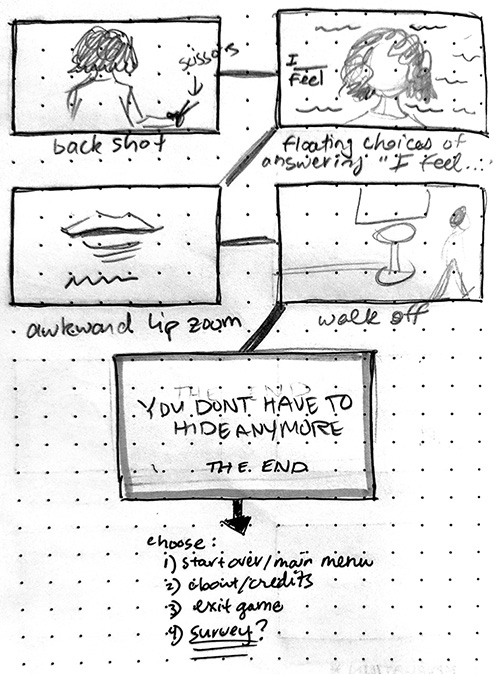 scissors
back shot
I
Feel
floating choices of
answering "I feel...
awkward lip zoom
walk off
THE END
YOU DONT HAVE TO
HIDE ANYMORE
THE END
choose:
1) start over/main menu
2) about/credits
3) exit game
4) survey?